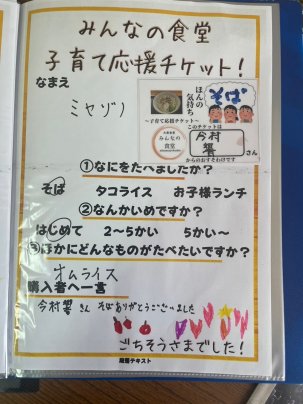 みんなの食堂
子育て応援チケット!
なまえ
ミヤゾノ
ほんの
気持ち
そば
〜子育て応援チケット〜
みんなの
食堂
このチケットは
今村
響さん
からのおすそわけです
①なにをたべましたか?
そば タコライス お子様ランチ
②なんかいめですか?
はじめて 2〜5かい 5かい〜
③ほかにどんなものがたべたいですか?
オムライス
購入者へ一言
今村響さん そばありがとうございました
ごちそうさまでした!
段落テキスト